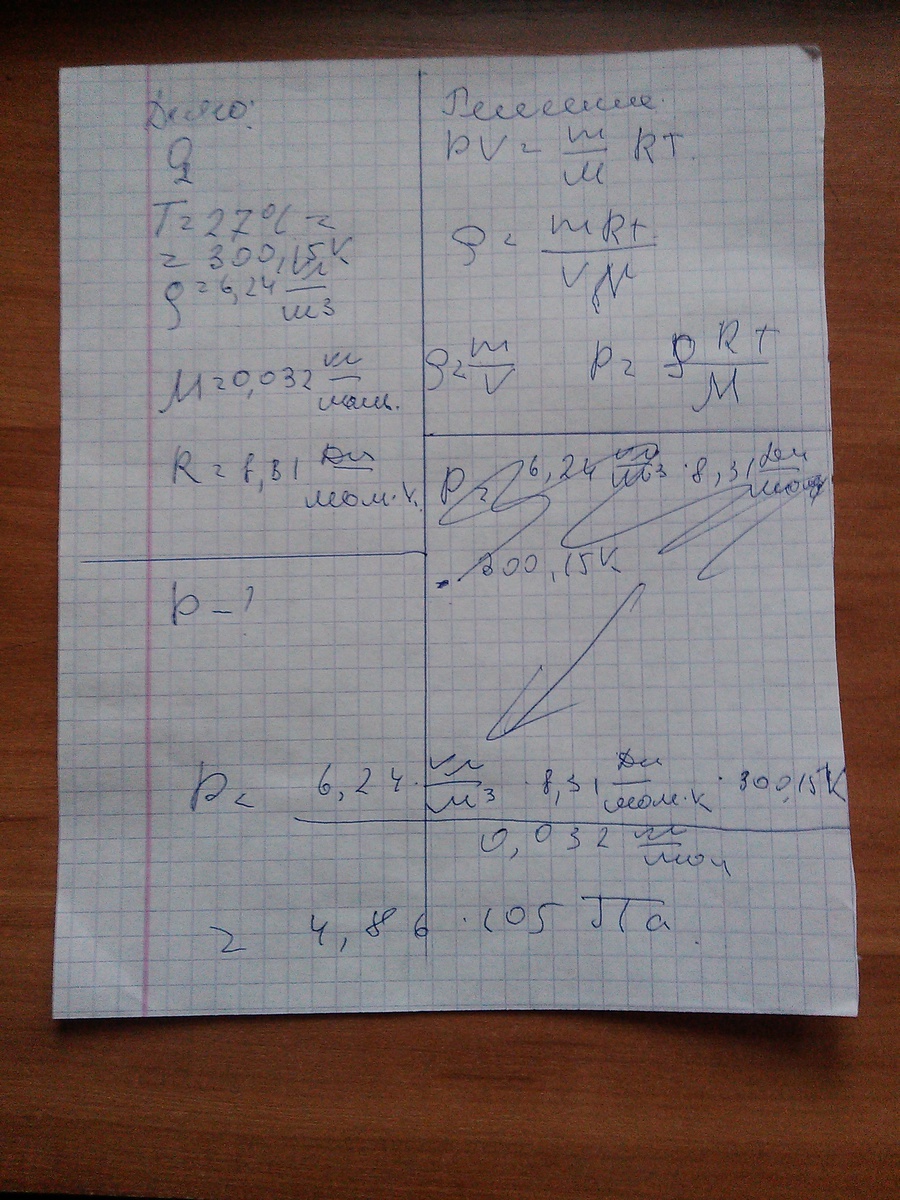 Дано:
O₂
T = 27°C =
= 300,15K
ρ = 6,24 кг/м3
M = 0,032 кг/моль.
R = 8,31 Дж/моль·К
p - ?
Решение.
pV = m/M RT.
ρ = mRt/VM
ρ = m/V p = ρRT/M
p = 6,24 кг/м3 · 8,31 Дж/моль
· 300,15K
p = 6,24 · кг/м3 · 8,31 Дж/моль·К · 300,15K
0,032 кг/моль
= 4,86 · 105 Па.